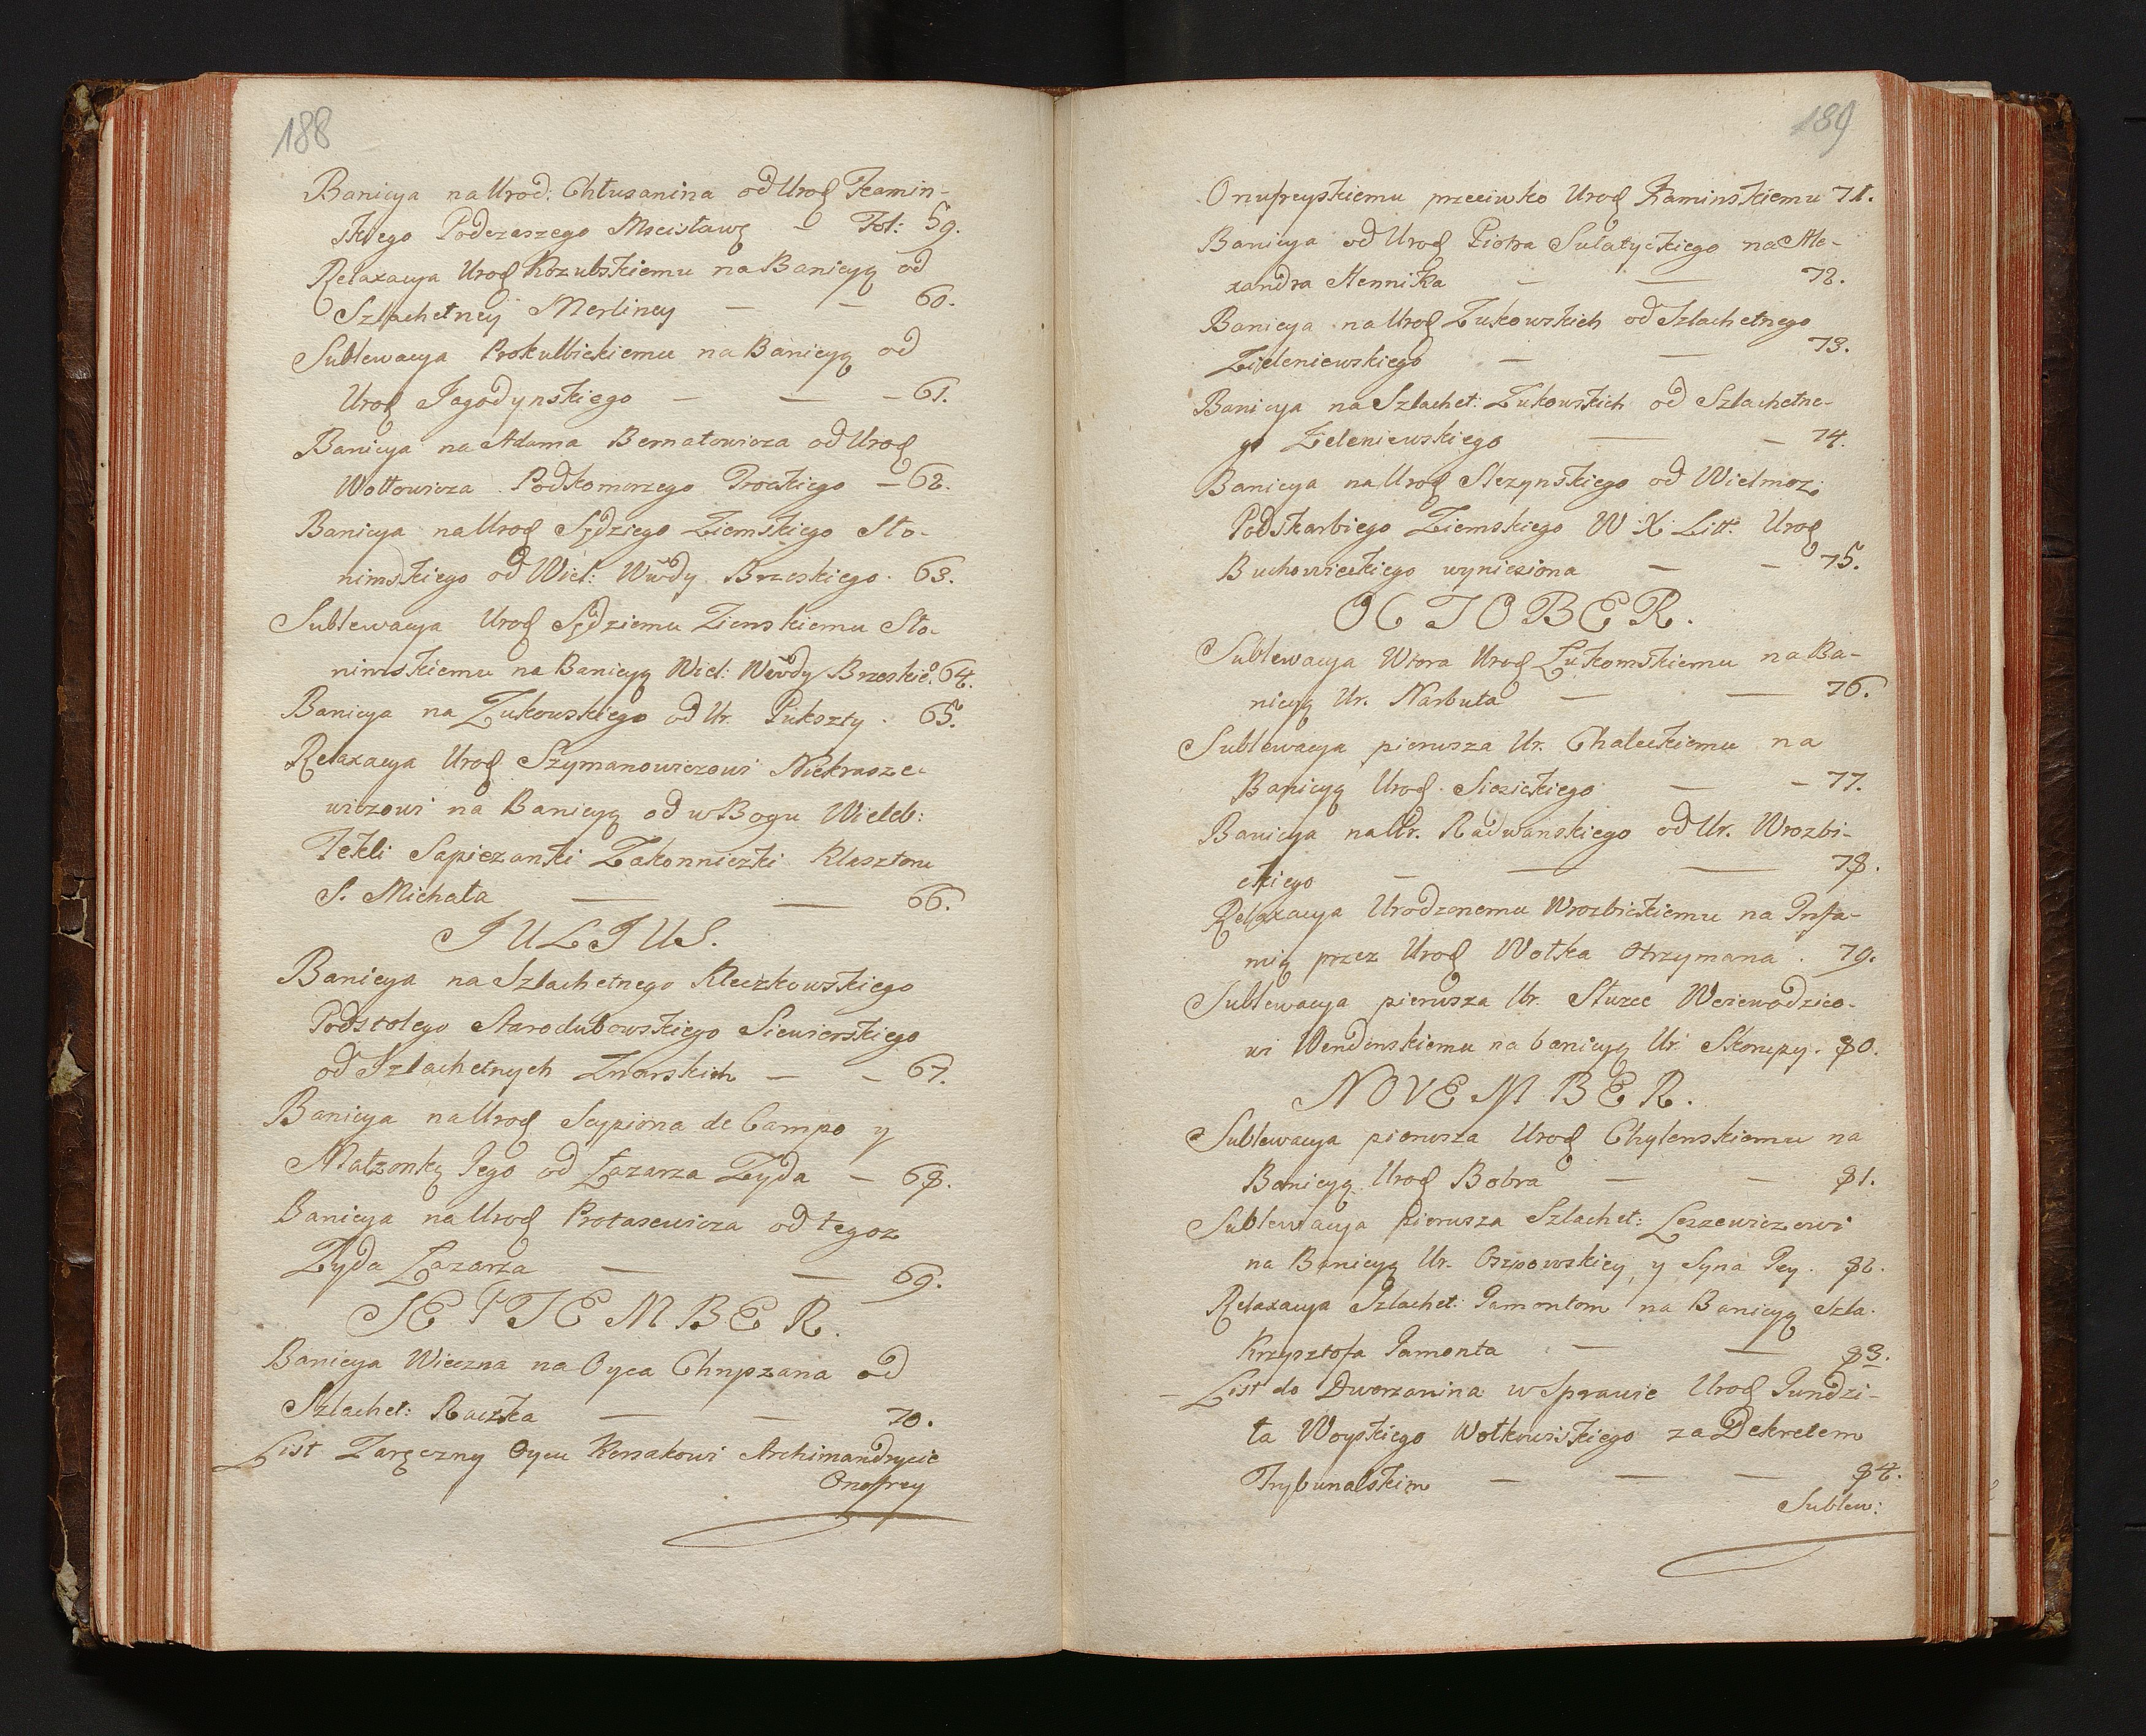 188
Banicya na Urod: Chłusanina od Urod Kamin-
skiego Podczaszego Mscisławᶒ - Fol: 59.
Relaxacya Urod Kozubskiemu na Banicyą od
Szlachetney Merliney — — 60.
Sublewacya Prokulbickiemu na Banicyą od
Urod Jagodynskiego — — - 61.
Banicya na Adama Bernatowicza od Urod
Wołłowicza Podkomorzego Trockiego — 62.
Banicya na Urod Sędziego Ziemskiego Sło-
nimskiego od Wiel: Wwdy Brzeskiego. 63.
Sublewacya Urod Sędziemu Ziemskiemu Sło-
nimskiemu na Banicyą Wiel: Wwody Brzeskiego. 64.
Banicya na Zukowskiego od Ur. Pukszty. 65.
Relaxacya Urod Szymanowiczowi Niekrasze-
wiczowi na Banicyą od w Bogu Wieleb:
Tekli Sapiezanki Zakonniczki Klasztoru
S. Michała — — 66.
JULIUS.
Banicya na Szlachetnego Kleczkowskiego
Podstolego Starodubowskiego Siewierskiego
od Szlachetnych Znorskich — - 67.
Banicya na Urod Scypiona de Campo y
Małzonkę Jego od Łazarza Zyda — 68.
Banicya na Urod Protasewicza od tegoz
Zyda Łazarza — — 69.
SEPTEMBER.
Banicya Wieczna na Oyca Chrypzana od
Szlachet: Raczka — — 70.
List Zaręczny Oycu Korsakowi Archimandrycie
Onofrey
189
Onufreyskiemu przeciwko Urod Kaminskiemu 71.
Banicya od Urod Piotra Sulatyckiego na Ale-
xandra Hennika - — 72.
Banicya na Urod Zukowskich od Szlachetnego
Zieleniewskiego — — 73.
Banicya na Szlachet: Zukowskich od Szlachetne-
go Zieleniewskiego — - 74.
Banicya na Urod Slezynskiego od Wielmoz:
Podskarbiego Ziemskiego W X Litt. Urod
Buchowieckiego wyniesiona — - 75.
OCTOBER.
Sublewacya Wtora Urod Łukomskiemu na Ba-
nicyą Ur. Narbuta — — 76.
Sublewacya pierwsza Ur. Chaleckiemu na
Banicyą Urod. Siesickiego — - 77.
Banicya na Ur. Radwanskiego od Ur. Wrozbi-
ckiego - — — 78.
Relaxacya Urodzonemu Wrozbickiemu na Infa-
mią przez Urod Wołka otrzymana. 79.
Sublewacya pierwsza Ur. Sturce Woiewodzico-
wi Wendenskiemu na banicyą Ur. Skorupy. 80.
NOVEMBER.
Sublewacya pierwsza Urod Chylenskiemu na
Banicyą Urod Bobra — - 81.
Sublewacya pierwsza Szlachet: Leszewiczowi
na Banicyą Ur. Oszpowskiey, y Syna Jey. 82.
Relaxacya Szlachet: Jamontom na Banicyą Szla.
Krzysztofa Jamonta — — 83.
- List do Dworzanina w Sprawie Urod Jundzi-
ła Woyskiego Wołkowiskiego za Dekretem
Trybunalskim — — — 84.
Sublew: